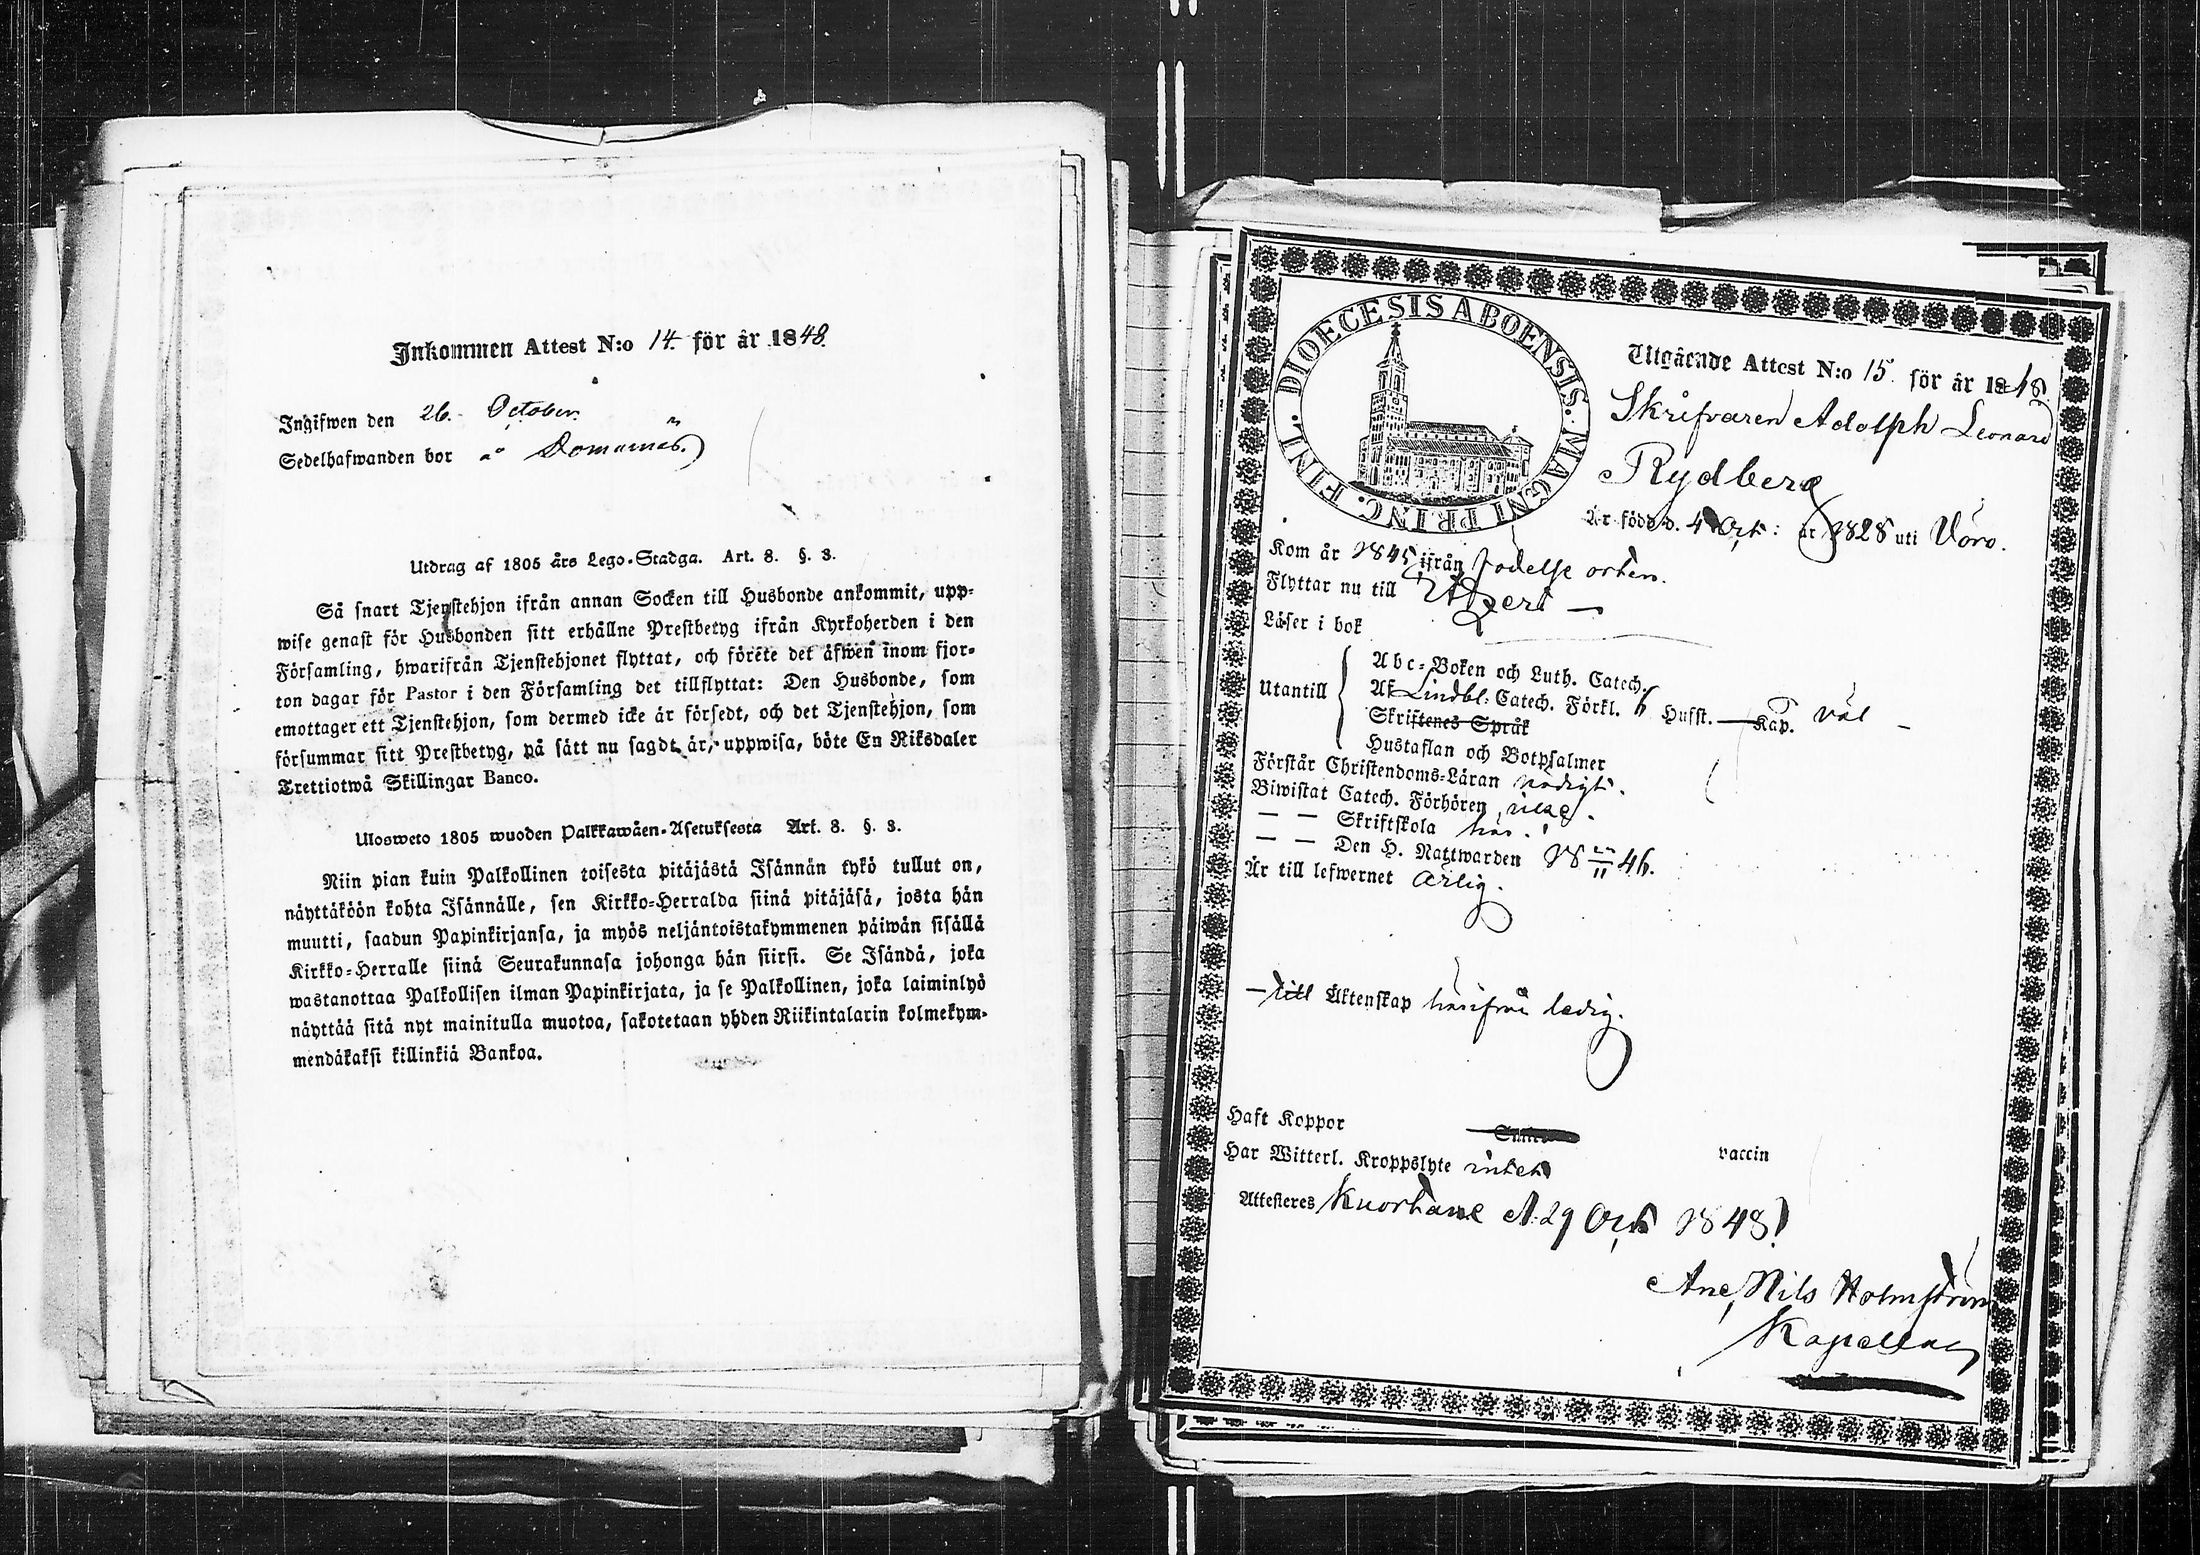 Inkommen Attest N:o 14. för år 1848.
Ingifwen den 26. October.
Sedelhafwanden bor å Domarnäs.
Utdrag af 1805 års Lego-Stadga. Art. 8. §. 3.
Så snart Tjenstehjon ifrån annan Socken till Husbonde ankommit, upp-
wise genast för Husbonden sitt erhållne Prestbetyg ifrån Kyrkoherden i den
Församling, hwarifrån Tjenstehjonet flyttat, och förete det äfwen inom fjor-
ton dagar för Pastor i den Församling det tillflyttat: Den Husbonde, som
emottager ett Tjenstehjon, som dermed icke är försedt, och det Tjenstehjon, som
försummar sitt Prestbetyg, på sätt nu sagdt är, uppwisa, böte En Riksdaler
Trettiotwå Skillingar Banco.
Ulosweto 1805 wuoden Palkkawäen-Asetuksesta Art. 8. §. 3.
Niin pian kuin Palkollinen toisesta pitäjästä Isännän tykö tullut on,
näyttäköön kohta Isännälle, sen Kirkko-Herralda siinä pitäjäsä, josta hän
muutti, saadun Papinkirjansa, ja myös neljäntoistakymmenen päiwän sisällä
Kirkko-Herralle siinä Seurakunnasa johonga hän siirsi. Se Isändä, joka
wastanottaa Palkollisen ilman Papinkirjata, ja se Palkollinen, joka laiminlyö
näyttää sitä nyt mainitulla muotoa, sakotetaan yhden Riikintalarin kolmekym-
mendäkaksi killinkiä Bankoa.
DIOECESIS ABOENSIS. MAGNI PRINC. FINL.
Utgående Attest N:o 15. för år 1848.
Skrifvaren Adolph Leonard
Rydberg
Är född d. 4 Oct: år 1828 uti Vörå.
Kom år 1845 ifrån födelse orten.
Flyttar nu till
Läser i bok
Abc-Boken och Luth. Catech.
Utantill Af Lindbl. Catech. Förkl. Husst. Kap. väl
Skriftenes Språk
Hustaflan och Botpsalmer
Förstår Christendoms-Läran nödigt.
Biwistat Catech. Förhören icke.
— — Skriftskola här.
— — Den H. Nattwarden 18 11 46.
Är till lefwernet ärlig.
— till Äktenskap härifrån ledig.
Haft Koppor vaccin
Har Witterl. Kroppslyte intet
Attesteres Kuortane d. 29 Oct 1848.
Nils Holmström
Kapellan